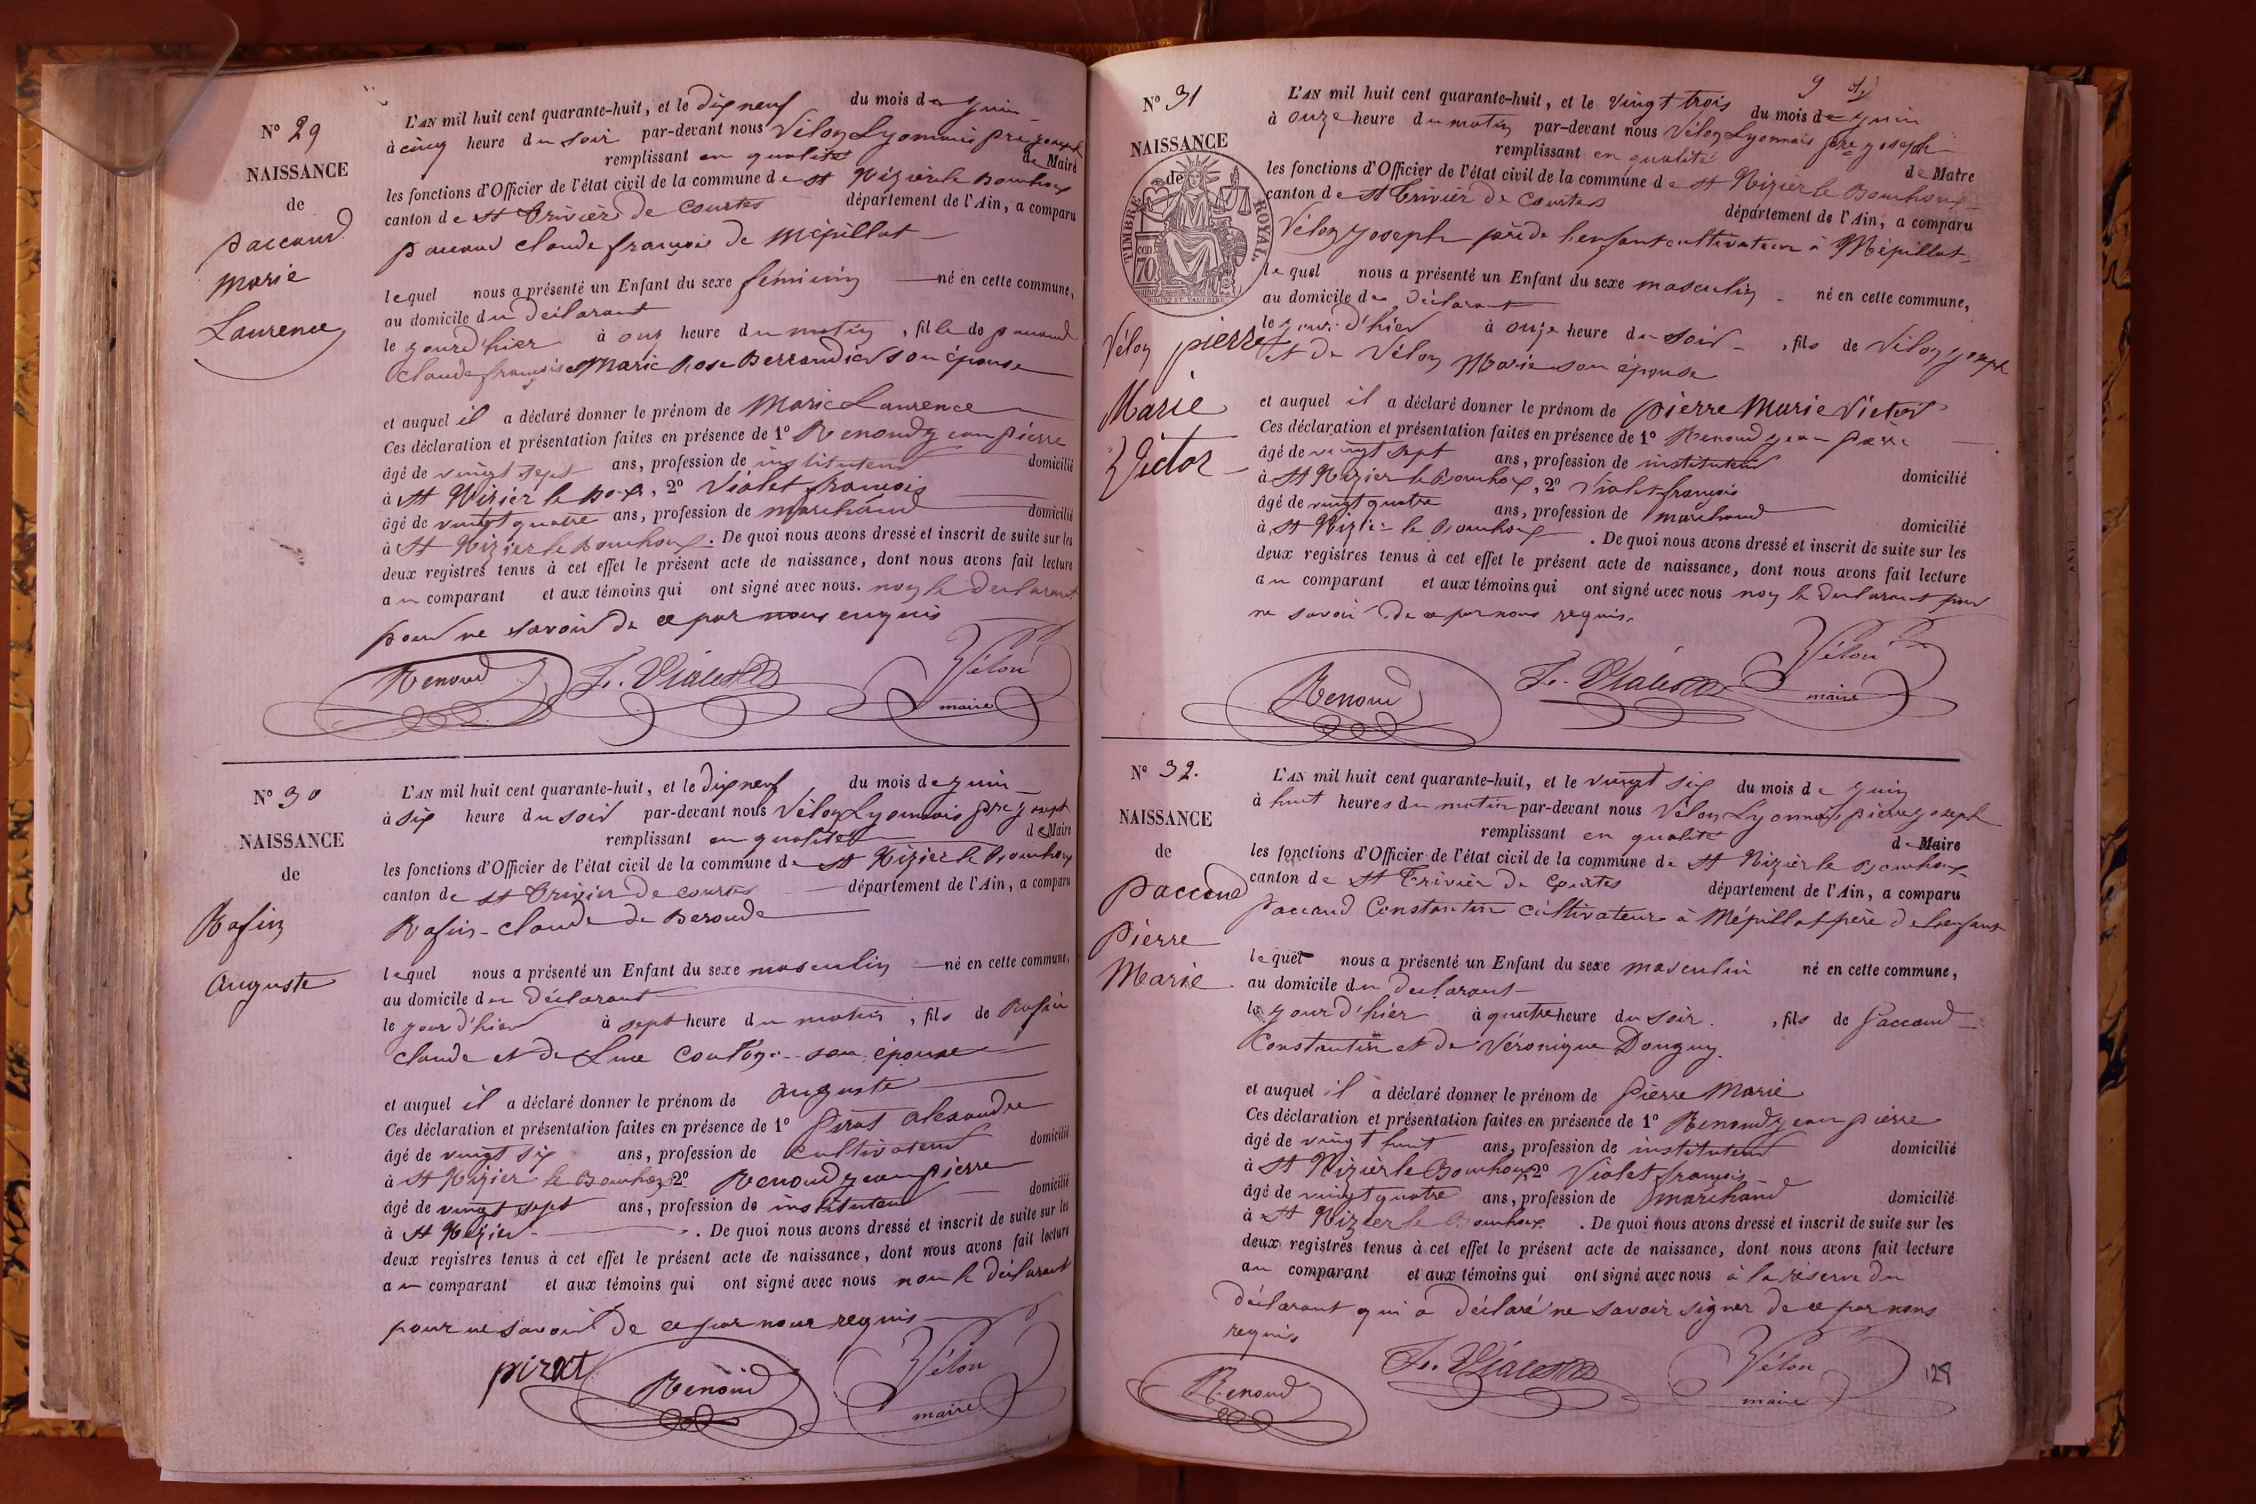 N° 29
NAISSANCE
de
paccaud
Marie
Laurence
L'AN mil huit cent quarante-huit, et le dix neuf du mois de juin
à cinq heure du soir par-devant nous Vélon Lyonnais pre joseph
remplissant en qualité de Maire
les fonctions d'Officier de l'état civil de la commune de St Nizier le Bouhoux
canton de St Trivier de Courtes département de l'Ain, a comparu
paccaud claude françois de Mépillat
lequel nous a présenté un Enfant du sexe féminin né en cette commune,
au domicile du déclarant
le jour d'hier à onze heure du matin, fille de paccaud
claude françois et Marie Rose son épouse
et auquel il a déclaré donner le prénom de Marie Laurence
Ces déclaration et présentation faites en présence de 1° Renoud jean pierre
âgé de vingt sept ans, profession de instituteur domicilié
à St Nizier le Boux, 2° Violet françois
âgé de vingt quatre ans, profession de marchand domicilié
à St Nizier le Bouhoux. De quoi nous avons dressé et inscrit de suite sur les
deux registres tenus à cet effet le présent acte de naissance, dont nous avons fait lecture
au comparant et aux témoins qui ont signé avec nous. non le déclarant
pour ne savoir de ce par nous enquis
Renoud F. Violet Vélon
maire
N° 30
NAISSANCE
de
Rafin
auguste
L'AN mil huit cent quarante-huit, et le dix neuf du mois de juin
à six heure du soir par-devant nous Vélon Lyonnais pre joseph
remplissant en qualité de Maire
les fonctions d'Officier de l'état civil de la commune de St Nizier le Bouhoux
canton de St Trivier de courtes département de l'Ain, a comparu
Rafin claude de
lequel nous a présenté un Enfant du sexe masculin né en cette commune,
au domicile du déclarant
le jour d'hier à sept heure du matin, fils de Rafin
claude et de son épouse
et auquel il a déclaré donner le prénom de auguste
Ces déclaration et présentation faites en présence de 1° Pirat alexandre
âgé de vingt six ans, profession de cultivateur domicilié
à St Nizier le Bouhoux 2° Renoud jean pierre
âgé de vingt sept ans, profession de instituteur domicilié
à St Nizier. De quoi nous avons dressé et inscrit de suite sur les
deux registres tenus à cet effet le présent acte de naissance, dont nous avons fait lecture
au comparant et aux témoins qui ont signé avec nous non le déclarant
pour ne savoir de ce par nous requis
pirat Renoud Vélon
maire
9
N° 31
NAISSANCE
de
TIMBRE ROYAL
70
Vélon pierre
Marie
Victor
L'AN mil huit cent quarante-huit, et le vingt trois du mois de juin
à onze heure du matin par-devant nous Vélon Lyonnais pre joseph
remplissant en qualité de Maire
les fonctions d'Officier de l'état civil de la commune de St Nizier le Bouhoux
canton de St Trivier de Courtes département de l'Ain, a comparu
Vélon joseph père de l'enfant cultivateur à Mépillat
lequel nous a présenté un Enfant du sexe masculin né en cette commune,
au domicile du déclarant
le jour d'hier à onze heure du soir, fils de Vélon joseph
et de Vélon Marie son épouse
et auquel il a déclaré donner le prénom de pierre Marie Victor
Ces déclaration et présentation faites en présence de 1° Renoud jean pierre
âgé de vingt sept ans, profession de instituteur domicilié
à St Nizier le Bouhoux, 2° Violet françois
âgé de vingt quatre ans, profession de marchand domicilié
à St Nizier le Bouhoux. De quoi nous avons dressé et inscrit de suite sur les
deux registres tenus à cet effet le présent acte de naissance, dont nous avons fait lecture
au comparant et aux témoins qui ont signé avec nous non le déclarant pour
ne savoir de ce par nous requis.
Renoud F. Violet Vélon
maire
N° 32.
NAISSANCE
de
Paccaud
Pierre
Marie
L'AN mil huit cent quarante-huit, et le vingt six du mois de juin
à huit heures du matin par-devant nous Vélon Lyonnais pierre joseph
remplissant en qualité de Maire
les fonctions d'Officier de l'état civil de la commune de St Nizier le Bouhoux
canton de St Trivier de Courtes département de l'Ain, a comparu
Paccaud Constantin cultivateur à Mépillat père de l'enfant
lequel nous a présenté un Enfant du sexe masculin né en cette commune,
au domicile du déclarant
le jour d'hier à quatre heure du soir, fils de Paccaud
Constantin et de Véronique Donguy.
et auquel il a déclaré donner le prénom de Pierre Marie
Ces déclaration et présentation faites en présence de 1° Renoud jean pierre
âgé de vingt huit ans, profession de instituteur domicilié
à St Nizier le Bouhoux 2° Violet françois
âgé de vingt quatre ans, profession de marchand domicilié
à St Nizier le Bouhoux. De quoi nous avons dressé et inscrit de suite sur les
deux registres tenus à cet effet le présent acte de naissance, dont nous avons fait lecture
au comparant et aux témoins qui ont signé avec nous à la réserve du
déclarant qui a déclaré ne savoir signer de ce par nous
requis
Renoud F. Violet Vélon
maire
128